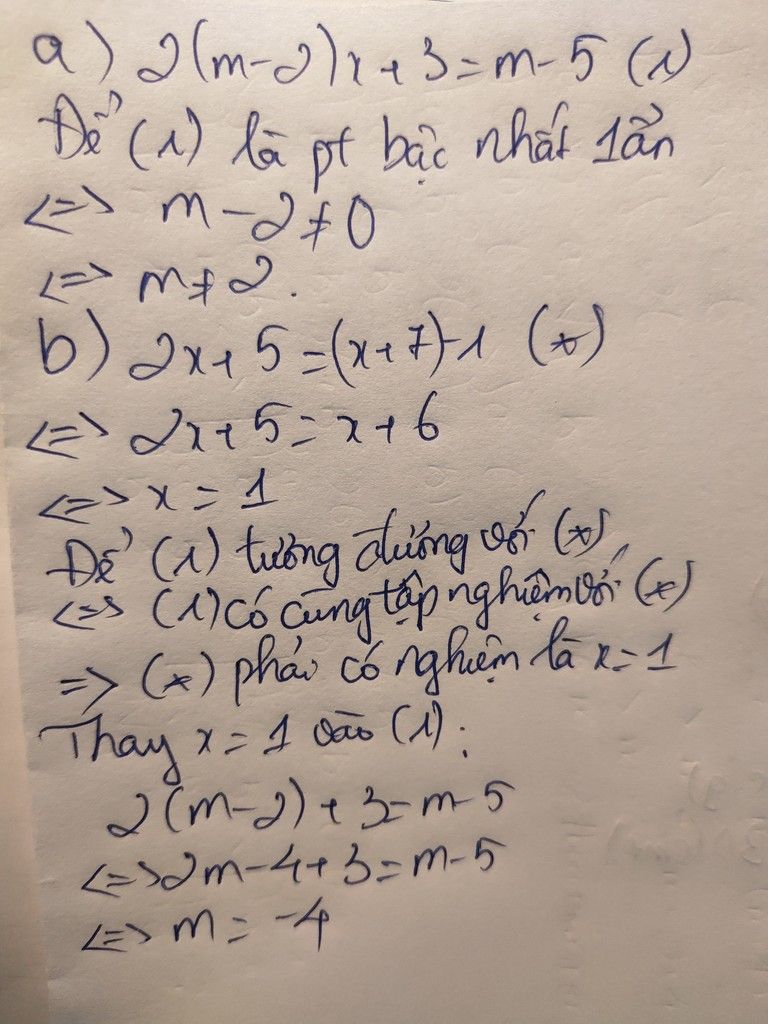 a) 2(m-2)x+3=m-5 (1)
Để (1) là pt bậc nhất 1 ẩn
<=> m-2≠0
<=> m≠2.
b) 2x+5=(x+7)-1 (*)
<=> 2x+5=x+6
<=> x=1
Để (1) tương đương với (*)
<=> (1) có cùng tập nghiệm với (*)
=> (*) phải có nghiệm là x=1
Thay x=1 vào (1):
2(m-2)+3=m-5
<=> 2m-4+3=m-5
<=> m=-4